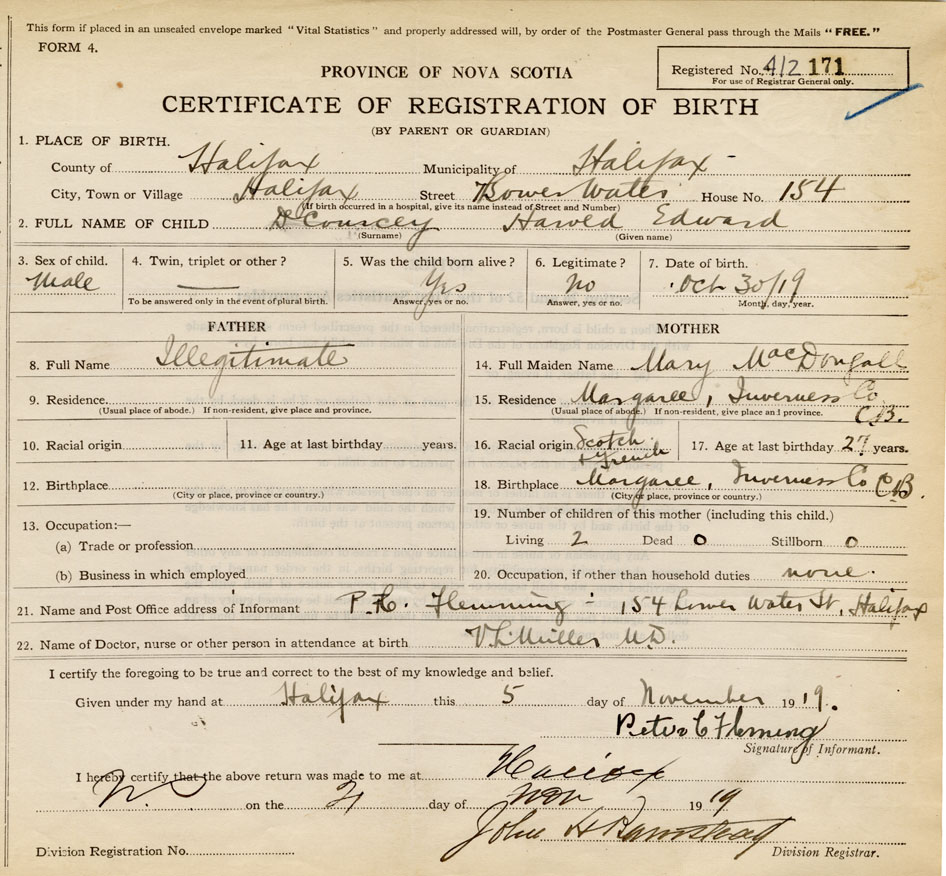 This form if placed in an unsealed envelope marked "Vital Statistics" and properly addressed will, by order of the Postmaster General pass through the Mails "FREE."
FORM 4.
PROVINCE OF NOVA SCOTIA
Registered No. 412 171
For use of Registrar General only.
CERTIFICATE OF REGISTRATION OF BIRTH
(BY PARENT OR GUARDIAN)
1. PLACE OF BIRTH.
County of Halifax Municipality of Halifax
City, Town or Village Halifax Street Water House No. 154
(If birth occurred in a hospital, give its name instead of Street and Number)
2. FULL NAME OF CHILD DeCourcey Harold Edward
(Surname) (Given name)
3. Sex of child. 4. Twin, triplet or other? 5. Was the child born alive? 6. Legitimate? 7. Date of birth.
Male — Yes No Oct 30/19
To be answered only in the event of plural birth. Answer, yes or no. Answer, yes or no. Month, day, year.
FATHER
8. Full Name Illegitimate
9. Residence
(Usual place of abode.) If non-resident, give place and province.
10. Racial origin 11. Age at last birthday years.
12. Birthplace
(City or place, province or country.)
13. Occupation:—
(a) Trade or profession
(b) Business in which employed
MOTHER
14. Full Maiden Name Mary MacDougall
15. Residence Margaree, Inverness Co C.B.
(Usual place of abode.) If non-resident, give place and province.
16. Racial origin Scotch + French 17. Age at last birthday 27 years.
18. Birthplace Margaree, Inverness Co C.B.
(City or place, province or country.)
19. Number of children of this mother (including this child.)
Living 2 Dead 0 Stillborn 0
20. Occupation, if other than household duties none.
21. Name and Post Office address of Informant Flemming - 154 Lower Water St, Halifax
22. Name of Doctor, nurse or other person in attendance at birth V.L. Miller M.D.
I certify the foregoing to be true and correct to the best of my knowledge and belief.
Given under my hand at Halifax this 5 day of November 1919.
Peter C Fleming
Signature of Informant.
I hereby certify that the above return was made to me at Halifax
N.S on the day of Nov 1919
John H Barnstead
Division Registration No. Division Registrar.